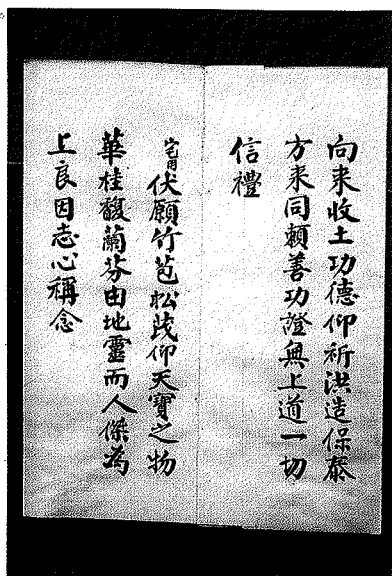 向来收土功德仰祈洪造保泰
方来同頼善功證無上道一切
信禮
宅用伏願竹苞松茂仰天寶之物
華桂馥蘭芬由地靈而人傑為
上良因志心稱念